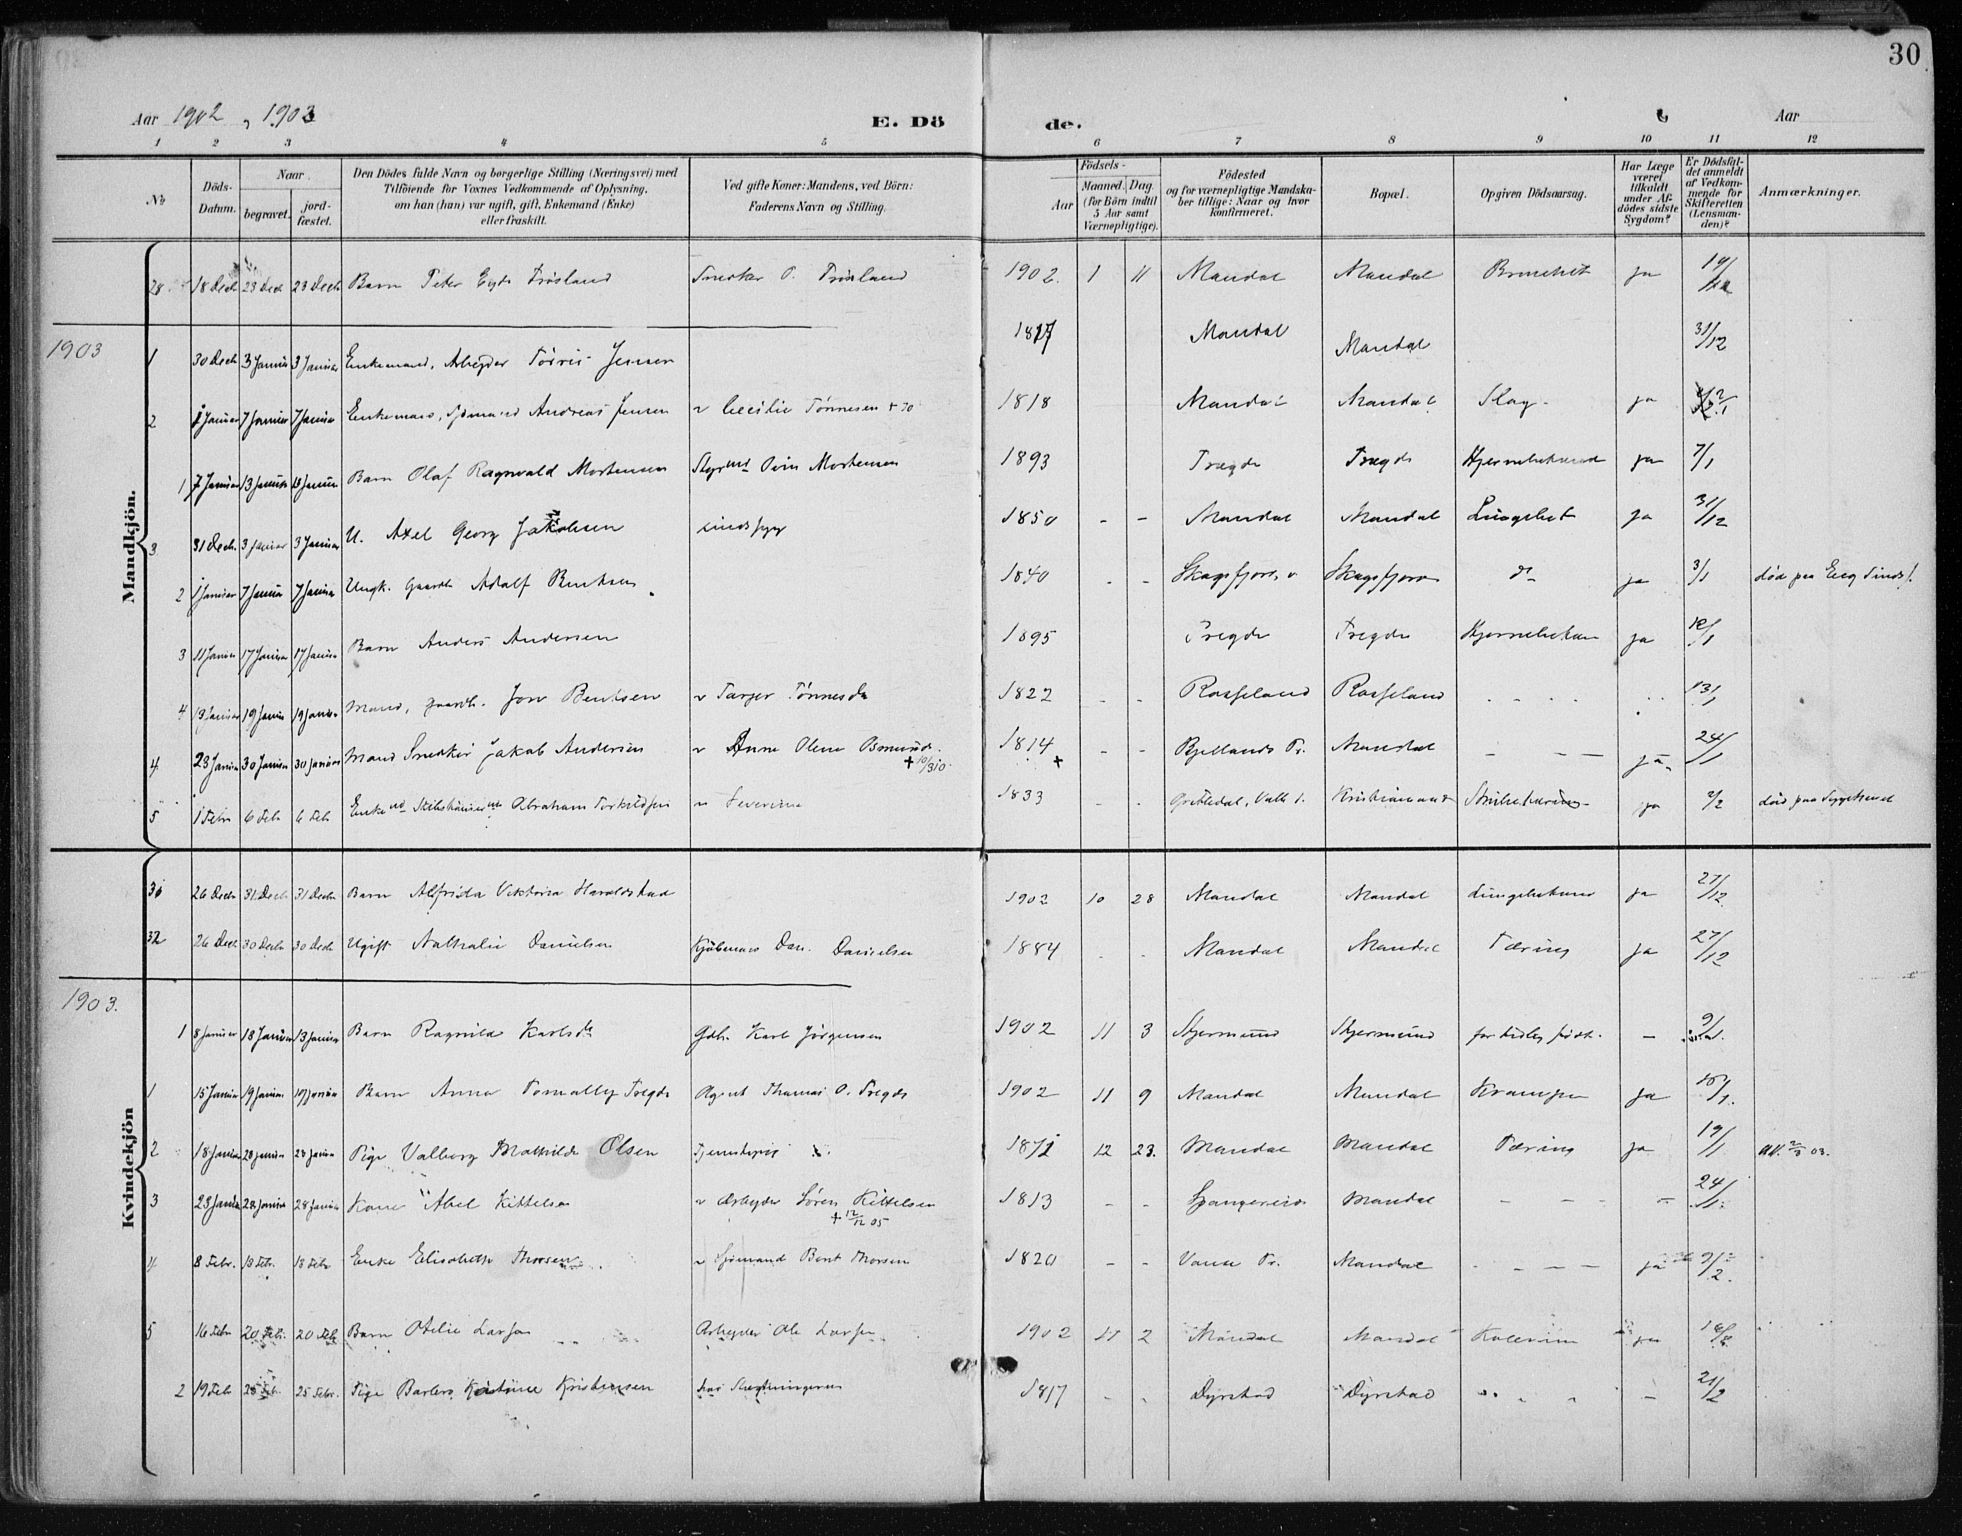 30
Aar 1902, 1903 E. Dö de. Aar
1 2 3 4 5 6 7 8 9 10 11 12
No
Döds-Datum.
Naar
begravet.
jord-fæstet.
Den Dödes fulde Navn og borgerlige Stilling (Næringsvei) med
Tilföiende for Voxnes Vedkommende af Oplysning,
om han (hun) var ugift, gift, Enkemand (Enke)
eller fraskilt.
Ved gifte Koner: Mandens, ved Börn:
Faderens Navn og Stilling.
Födsels-
Aar
Maaned. Dag.
(for Börn indtil
5 Aar samt
Værnepligtige).
Födested
og for værnepligtige Mandska-
ber tillige: Naar og hvor
konfirmeret.
Bopæl.
Opgiven Dödsaarsag.
Har Læge
været
tilkaldt
under Af-
dödes sidste
Sygdom?
Er Dödsfal-
det anmeldt
af Vedkom-
mende for
Skifteretten
(Lensman-
den)?
Anmærkninger.
Mandkjön.
28 18 Dech 23 Dech 23 Dech Barn Peter Trösland Snedker P. Trösland 1902. 1 11 Mandal Mandal Bronchit ja 19/12
1903
1 30 Dech 3 Januar 3 Januar Enkemand, Arbejder Törris Jensen 1817 Mandal Mandal 31/12
2 Januar 7 Januar 7 Januar Enkemand, Sjömand Andreas Jensen v Cecilie Tönnesen 1818 Mandal Mandal Slag. ja
1 7 Januar 13 Januar 13 Januar Barn Olaf Ragnvald Mortensen Styrmd Mortensen 1893 Tregde Tregde ja 7/1
3 31 Dech. 3 Januar 3 Januar U. Axel Georg Jakobsen sindssyg 1850 - - Mandal Mandal Lungebet ja 31/12
2 1 Januar 7 Januar 7 Januar Ungk. Gaardb. Adolf Bentsen 1840 - - Skogsfjord Skogsfjord do ja 3/1 död paa Eeg Sinds
3 11 Januar 17 Januar 17 Januar Barn Anders Andersen 1895 Tregde Tregde ja 12/1
4 19 Januar 19 Januar Mand, gaardb. Jon Bentsen v Tarjer Tönnesdr 1822 - - Rosseland Rosseland 13/1
4 23 Januar 30 Januar 30 Januar Mand Snedker Jakob Andersen v Anne Olene Osmunds. + 10/3 10 1814 + - - Bjellands Pr. Mandal - - - ja 24/1
5 1 Febr 6 Febr 6 Febr Enkemd Abraham Torkildsen v Severine 1833 - - Valle Kristianssand ja 2/2 död paa Sygehuset
Kvindekjön
31 26 Dech 31 Dech 31 Dech Barn Alfrida Viktoria Haraldstad 1902 10 28 Mandal Mandal ja 27/12
32 26 Dech 30 Dech 30 Dech Ugift Nathalie Danielsen Kjöbmand Dan. Danielsen 1884 - - Mandal Mandal Tæring ja 27/12
1903.
1 8 Januar 13 Januar 13 Januar Barn Ragnilda Karlsdr Gdb. Karl Jörgensen 1902 11 3 Skjernsund Skjernsund for tidlig födt. - 9/1
1 15 Januar 19 Januar 19 Januar Barn Anna Tregde Agent Thomas O. Tregde 1902 11 9 Mandal Mandal Krampe ja 15/1.
2 18 Januar 28 Januar 28 Januar Pige Valborg Mathilde Olsen Tjenestepige 1871 12 23. Mandal Mandal Tæring ja 19/1
3 23 Januar 28 Januar 28 Januar Kone Abel Kittelsen v Arbejder Sören Kittelsen + 12/12 05 1813 - - Spangereid Mandal - - - - 24/1
4 8 Febr. 13 Febr. 13 Febr Enke Elisabeth Thorsen v Sjömand Bent Thorsen 1820 - - Vanse Pr. Mandal - - - - ja 9/2.
5 16 Febr 20 Febr. 20 Febr Barn Otilie Larsen Arbejder Ole Larsen 1902 11 2 Mandal Mandal ja 18/2
2 19 Febr 25 Febr. 25 Febr. Pige Barbra Kristine Kristensen 1817 - - Dyrstad Dyrstad - 21/2